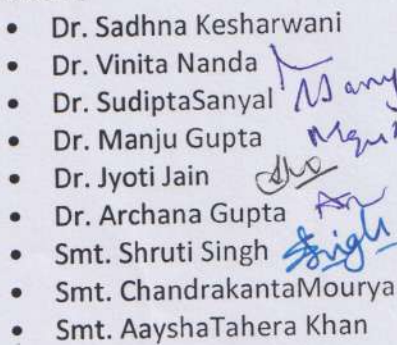 • Dr. Sadhna Kesharwani
• Dr. Vinita Nanda
• Dr. SudiptaSanyal
• Dr. Manju Gupta
• Dr. Jyoti Jain
• Dr. Archana Gupta
• Smt. Shruti Singh
• Smt. ChandrakantaMourya
• Smt. AayshaTahera Khan